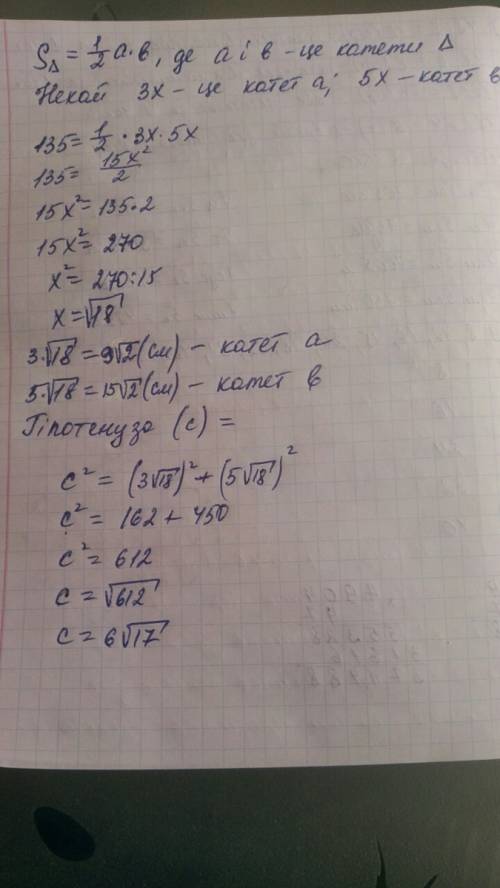 S△ = 1/2 a·в, де a і в - це катети △
Нехай 3x - це катет a; 5x - катет в
135 = 1/2 · 3x · 5x
135 = 15x²/2
15x² = 135·2
15x² = 270
x² = 270:15
x = √18
3·√18 = 9√2 (см) - катет a
5√18 = 15√2 (см) - катет в
Гіпотенуза (c) =
c² = (3√18)² + (5√18)²
c² = 162 + 450
c² = 612
c = √612
c = 6√17